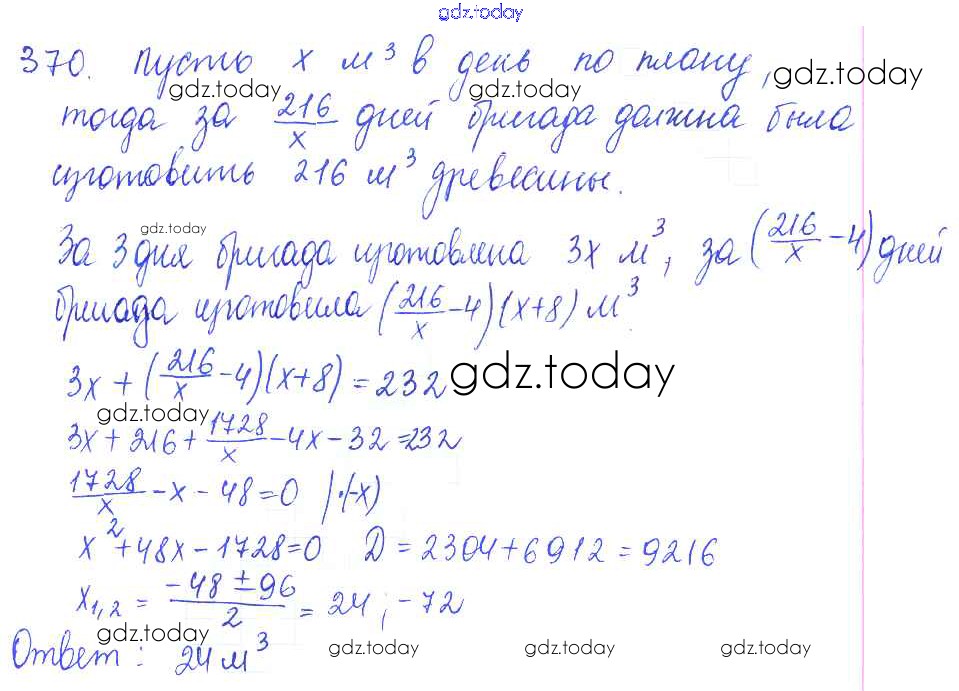 gdz.today
370. Пусть x м³ в день по плану,
gdz.today gdz.today
тогда за 216/x дней бригада должна была
изготовить 216 м³ древесины.
gdz.today
За 3 дня бригада изготовлена 3x м³, за (216/x - 4) дней
бригада изготовила (216/x - 4)(x+8) м³
3x + (216/x - 4)(x+8) = 232 gdz.today
gdz.today
3x + 216 + 1728/x - 4x - 32 = 232
1728/x - x - 48 = 0 |·(-x)
x² + 48x - 1728 = 0 D = 2304 + 6912 = 9216
x₁,₂ = (-48 ± 96)/2 = 24; -72
gdz.today
Ответ: 24 м³
gdz.today gdz.today gdz.today